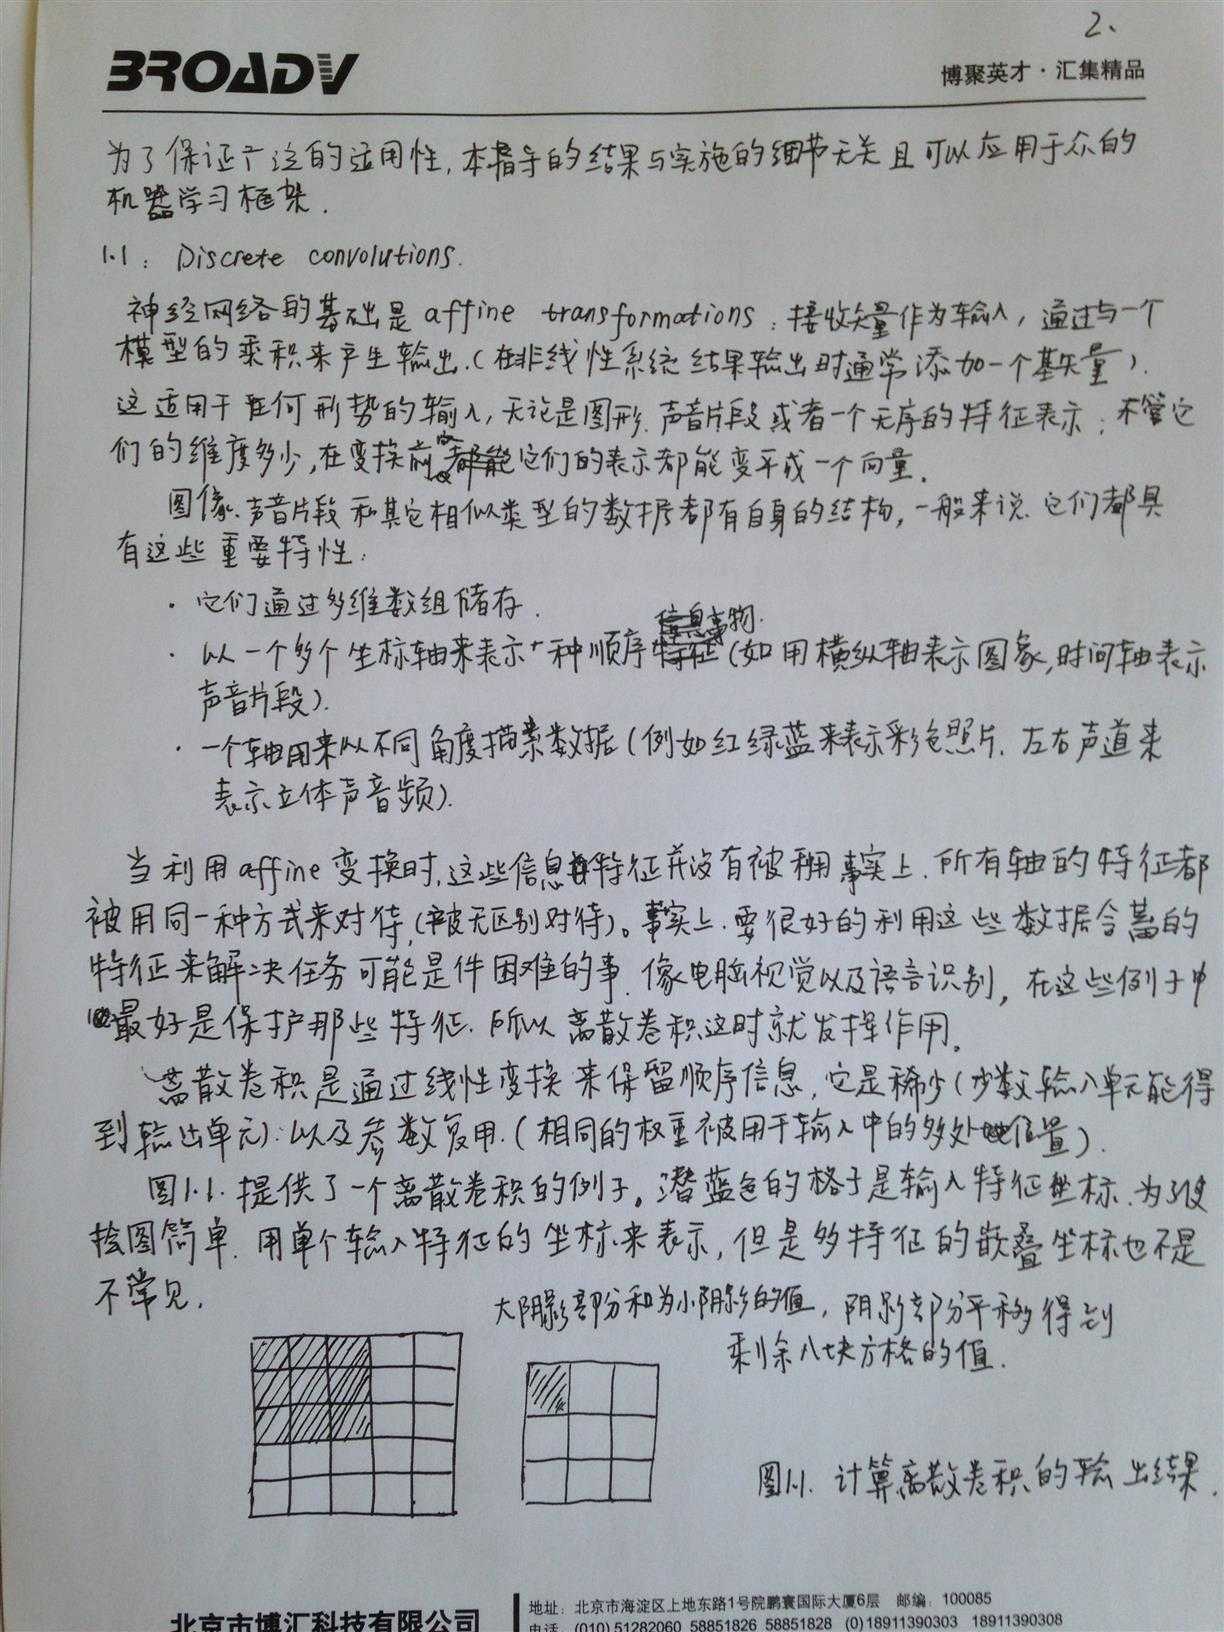 2、
BROADV
博聚英才·汇集精品
为了保证广泛的适用性,本指导的结果与实施的细节无关且可以应用于众的
机器学习框架.
1.1: Discrete convolutions.
神经网络的基础是affine transformations: 接收矢量作为输入, 通过与一个
模型的乘积来产生输出.(在非线性系统结果输出时通常添加一个基矢量).
这适用于任何形势的输入, 无论是图形.声音片段或者一个无序的特征表示; 不管它
们的维度多少,在变换前它们的表示都能变平成一个向量.
图像、声音片段和其它相似类型的数据都有自身的结构, 一般来说.它们都具
有这些重要特性:
· 它们通过多维数组储存.
信息事物.
· 以一个多个坐标轴来表示一种顺序(如用横纵轴表示图象,时间轴表示
声音片段).
· 一个轴用来从不同角度描素数据(例如红绿蓝来表示彩色照片.左右声道来
表示立体声音频).
当利用affine变换时,这些信息特征并没有被利用事实上.所有轴的特征都
被用同一种方式来对待,(被无区别对待)。事实上.要很好的利用这些数据含蓄的
特征来解决任务可能是件困难的事.像电脑视觉以及语言识别, 在这些例子中
最好是保护那些特征.所以离散卷积这时就发挥作用.
离散卷积是通过线性变换来保留顺序信息, 它是稀少(少数输入单元能得
到输出单元):以及参数复用.(相同的权重被用于输入中的多处位置).
图1.1.提供了一个离散卷积的例子。潜蓝色的格子是输入特征坐标.为了使
绘图简单.用单个输入特征的坐标来表示,但是多特征的嵌叠坐标也不是
不常见.
大阴影部分和为小阴影的值, 阴影部分平移得到
剩余八块方格的值.
图1.1. 计算离散卷积的输出结果.
北京市博汇科技有限公司
地址: 北京市海淀区上地东路1号院鹏寰国际大厦6层 邮编: 100085
电话: (010) 51282060 58851826 58851828 (0)18911390303 18911390308